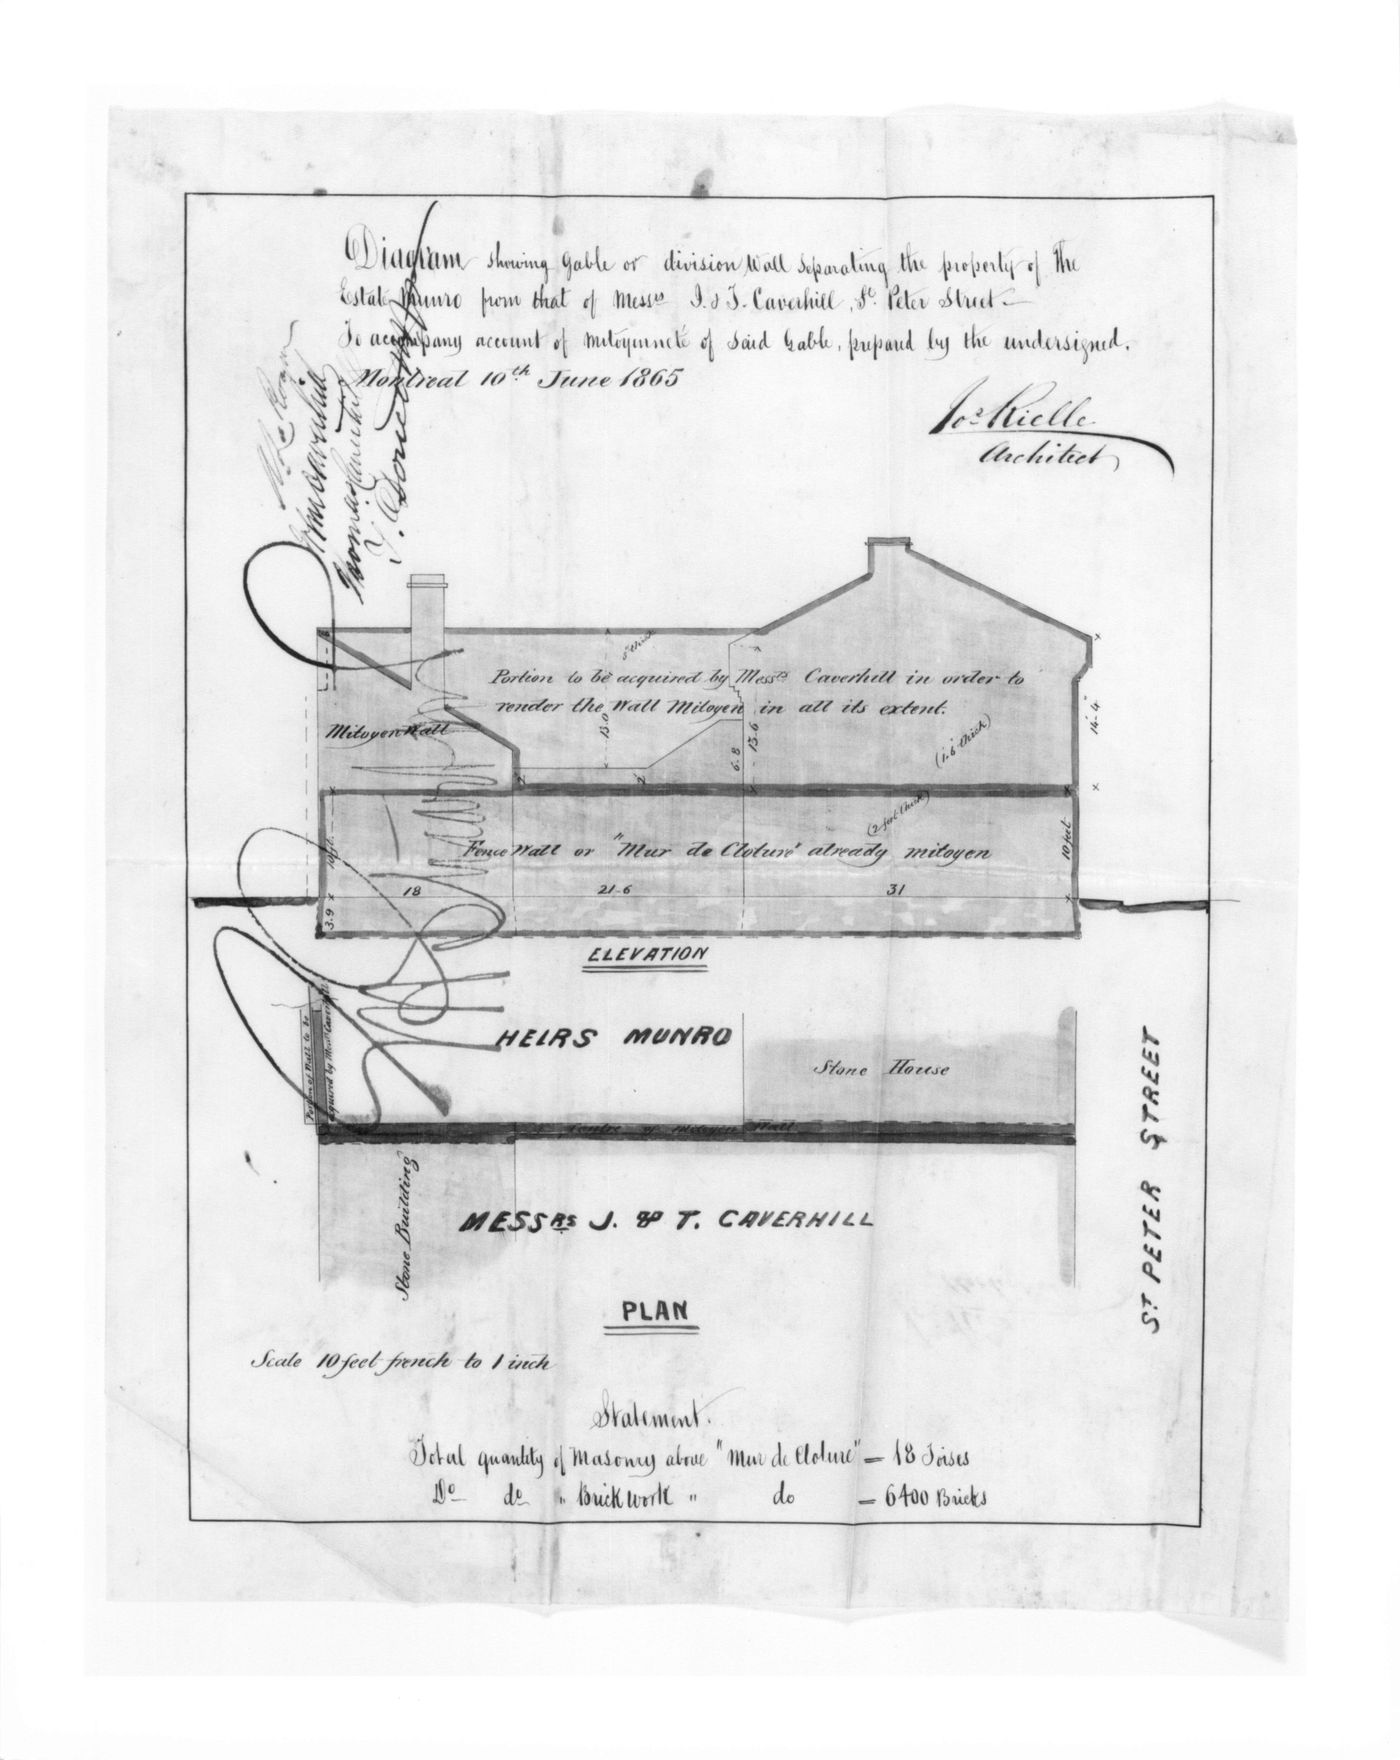 Diagram showing Gable or division Wall Separating the property of The
Estate Munro from that of Messrs J. & T. Caverhill, St. Peter Street
To accompany account of Mitoyenneté of Said Gable, prepared by the undersigned.
Montreal 10th June 1865
Jos Rielle
Architect
Thomas Caverhill
Portion to be acquired by Messrs Caverhill in order to
render the Wall Mitoyen in all its extent.
Mitoyen Wall
13.0
6.8
13.6
(1.6 thick)
14.4
2
2
(2 feet thick)
Fence Wall or "Mur de Cloture" already mitoyen
10 ft.
10 feet
18
21-6
31
3.9
ELEVATION
Portion of Wall to be
acquired by Messrs Caverhill
HEIRS MUNRO
Stone House
Centre of Mitoyen Wall
Stone Building
MESSRS J. & T. CAVERHILL
ST PETER STREET
PLAN
Scale 10 feet french to 1 inch
Statement.
Total quantity of Masonry above "Mur de Cloture" = 18 Toises
Do do " Brick work " do = 6400 Bricks